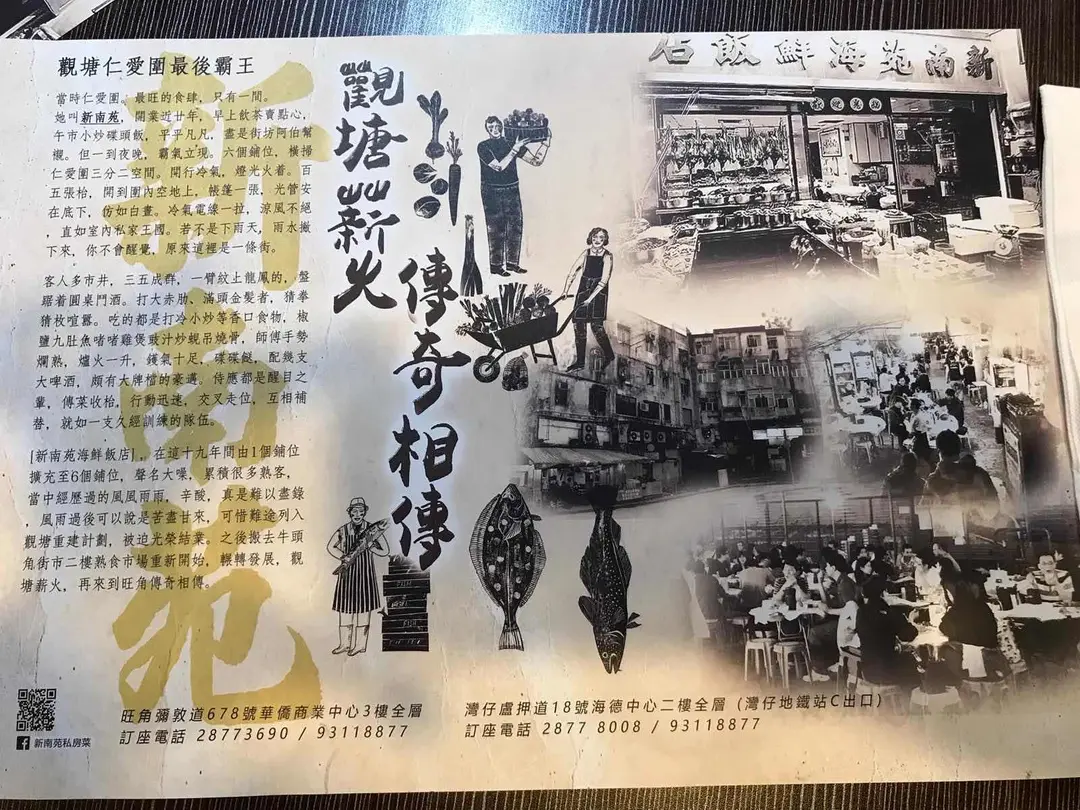 觀塘仁愛圍最後霸王
當時仁愛圍。最旺的食肆，只有一間。
她叫新南苑，開業近廿年，早上飲茶賣點心，
午市小炒碟頭飯，平平凡凡，盡是街坊阿伯幫
襯。但一到夜晚，霸氣立現。六個鋪位，橫掃
仁愛圍三分二空間。開行冷氣，燈光火着。百
五張枱，開到圍內空地上，帳篷一張，光管安
在底下，仿如白晝。冷氣電線一拉，涼風不絕
，直如室內私家王國。若不是下雨天，雨水撇
下來，你不會醒覺，原來這裡是一條街。
客人多市井，三五成群，一臂紋上龍鳳的，盤
踞着圓桌鬥酒。打大赤肋、滿頭金髮者，猜拳
猜枚喧囂。吃的都是打冷小炒等香口食物，椒
鹽九肚魚啫啫雞煲豉汁炒蜆吊燒骨，師傅手勢
爛熟，爐火一升，鑊氣十足，碟碟餸，配幾支
大啤酒，頗有大牌檔的豪邁。侍應都是醒目之
輩，傳菜收枱，行動迅速，交叉走位，互相補
替，就如一支久經訓練的隊伍。
[新南苑海鮮飯店]，在這十九年間由1個鋪位
擴充至6個鋪位，聲名大噪，累積很多熟客，
當中經歷過的風風雨雨，辛酸，真是難以盡錄
，風雨過後可以說是苦盡甘來，可惜難逾列入
觀塘重建計劃，被迫光榮結業。之後搬去牛頭
角街市二樓熟食市場重新開始，輾轉發展，觀
塘薪火，再來到旺角傳奇相傳。
新南苑
觀塘薪火
傳奇相傳
新南苑海鮮飯店
新南苑私房菜
旺角彌敦道678號華僑商業中心3樓全層
訂座電話 28773690 / 93118877
灣仔盧押道18號海德中心二樓全層 (灣仔地鐵站C出口)
訂座電話 2877 8008 / 93118877